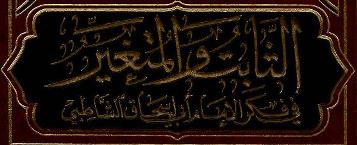 الثابت والمتغير
في فكر الإمام أبي إسحاق الشاطبي